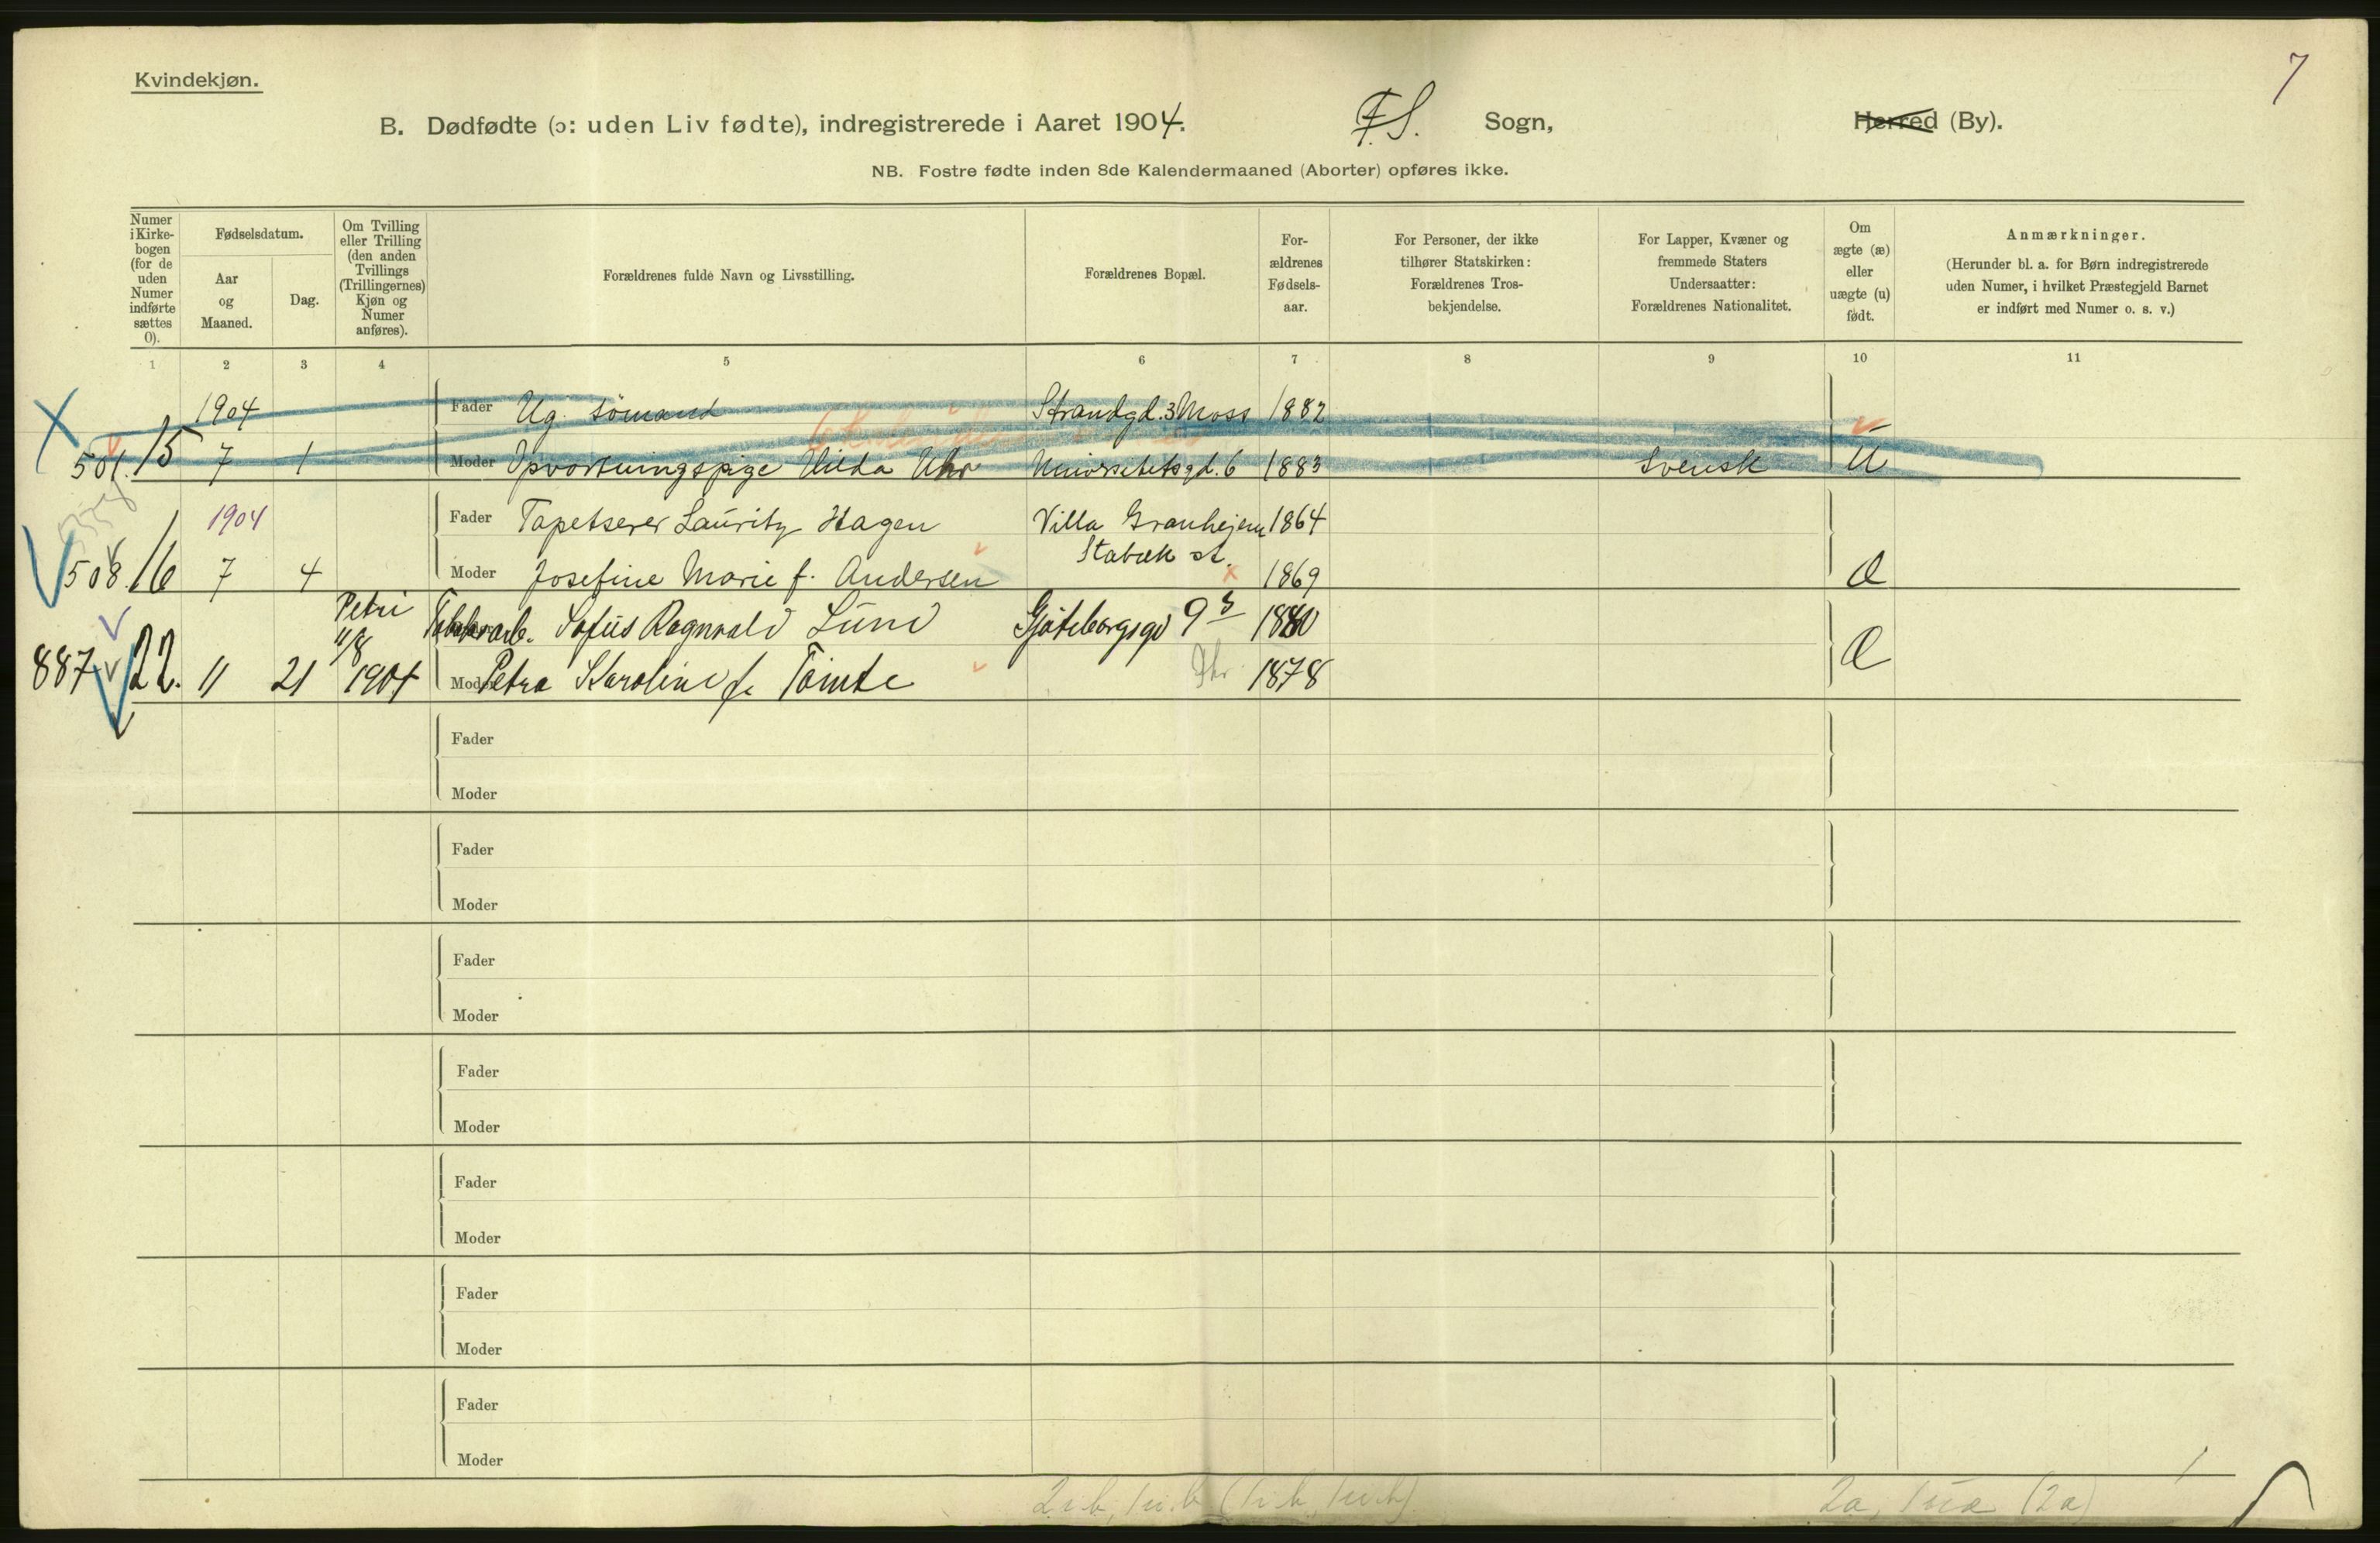 7
Kvindekjøn.
B. Dødfødte (ɔ: uden Liv fødte), indregistrerede i Aaret 1904. F.S. Sogn, Herred (By).
NB. Fostre fødte inden 8de Kalendermaaned (Aborter) opføres ikke.
Numer i Kirke-bogen (for de uden Numer indførte sættes 0).
Fødselsdatum.
Aar og Maaned.
Dag.
Om Tvilling eller Trilling (den anden Tvillings (Trillingernes) Kjøn og Numer anføres).
Forældrenes fulde Navn og Livsstilling.
Forældrenes Bopæl.
For-ældrenes Fødsels-aar.
For Personer, der ikke tilhører Statskirken: Forældrenes Tros-bekjendelse.
For Lapper, Kvæner og fremmede Staters Undersaatter: Forældrenes Nationalitet.
Om ægte (æ) eller uægte (u) født.
Anmærkninger.
(Herunder bl. a. for Børn indregistrerede uden Numer, i hvilket Præstegjeld Barnet er indført med Numer o. s. v.)
1 2 3 4 5 6 7 8 9 10 11
1904 Fader Ug. sømand Strandgd. 3 Moss 1882
501. 15 7 1 Moder Opvartningspige Hilda Universitetsgd. 6 1883 Svensk U
1904 Fader Tapetserer Lauritz Hagen Villa Granhejem 1864
Stabæk st.
508 16 7 4 Moder Josefine Marie f. Andersen 1869 Æ
Petri Sofus Ragnvald Lund Gjøteborgsgd 9 1880
887 22. 11 21 11/8 1904 Moder Petra Karoline f. Tømte 1878 Æ
Fader
Moder
Fader
Moder
Fader
Moder
Fader
Moder
Fader
Moder
Fader
Moder
Fader
Moder
2 i.b, 1 u.b (1 i.b, 1 u.b) 2a, 1ua (2a)